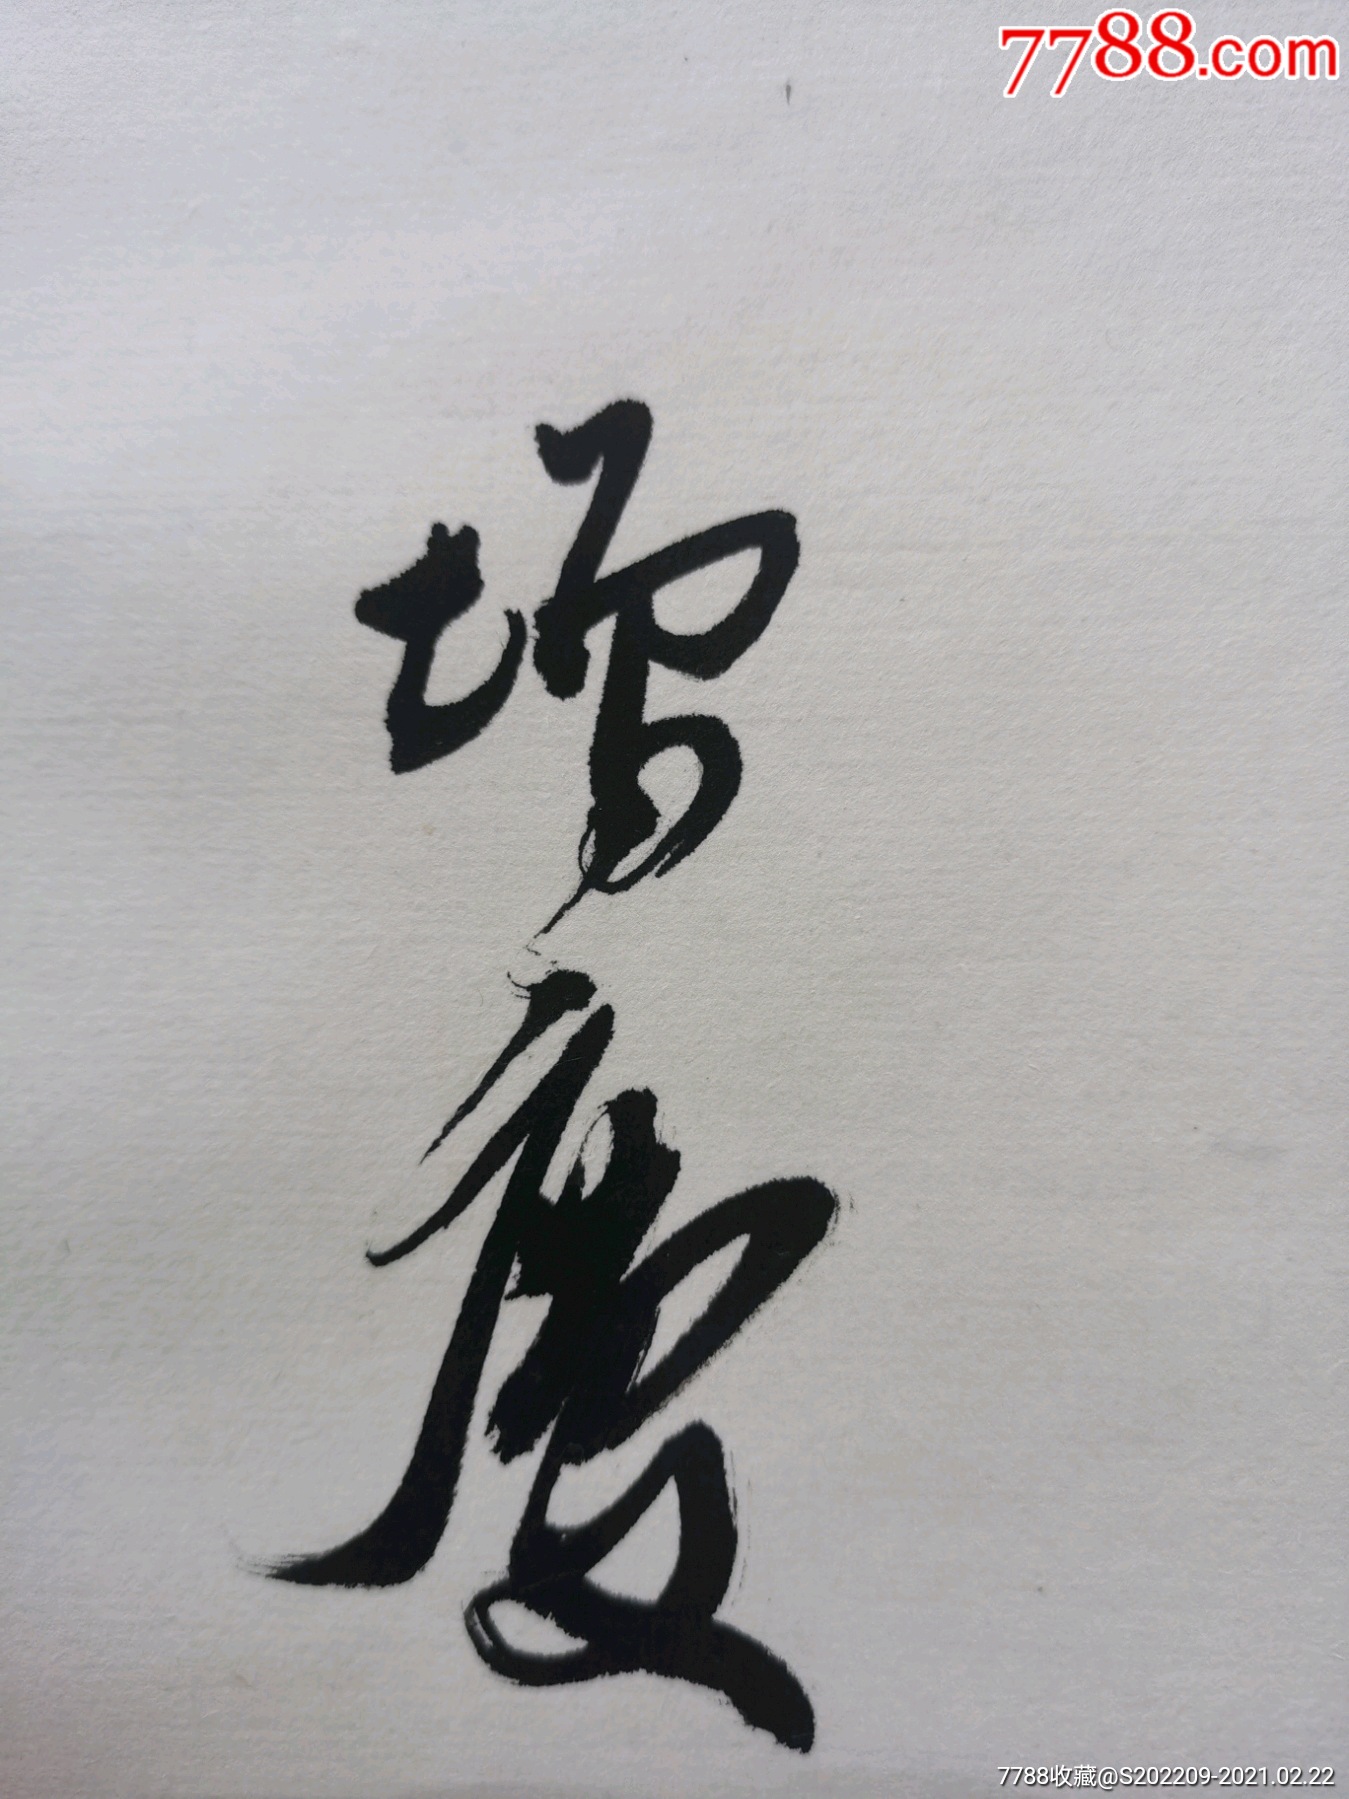 7788.com
增
慶
7788收藏@S202209-2021.02.22